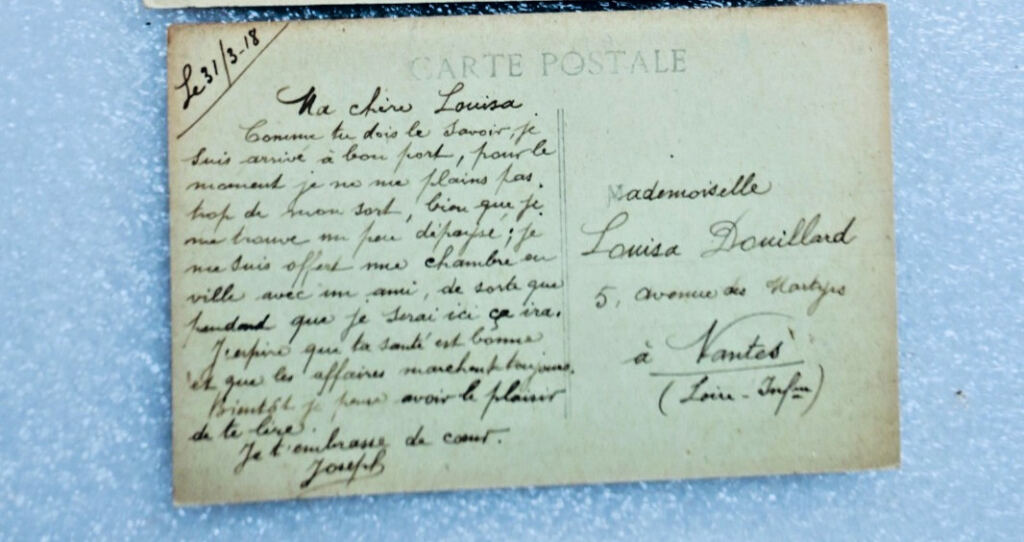 Le 31/3-18
CARTE POSTALE
Ma chère Louisa
Comme tu dois le savoir, je
suis arrivé à bon port, pour le
moment je ne me plains pas
trop de mon sort, bien que je
me trouve un peu dépaysé ; je
me suis offert une chambre en
ville avec un ami, de sorte que
pendant que je serai ici ça ira.
J'espère que ta santé est bonne
et que les affaires marchent toujours.
Bientôt je pense avoir le plaisir
de te lire.
Je t'embrasse de cœur.
Joseph
Mademoiselle
Louisa Douillard
5, avenue des Martyrs
à Nantes
(Loire-Infre)